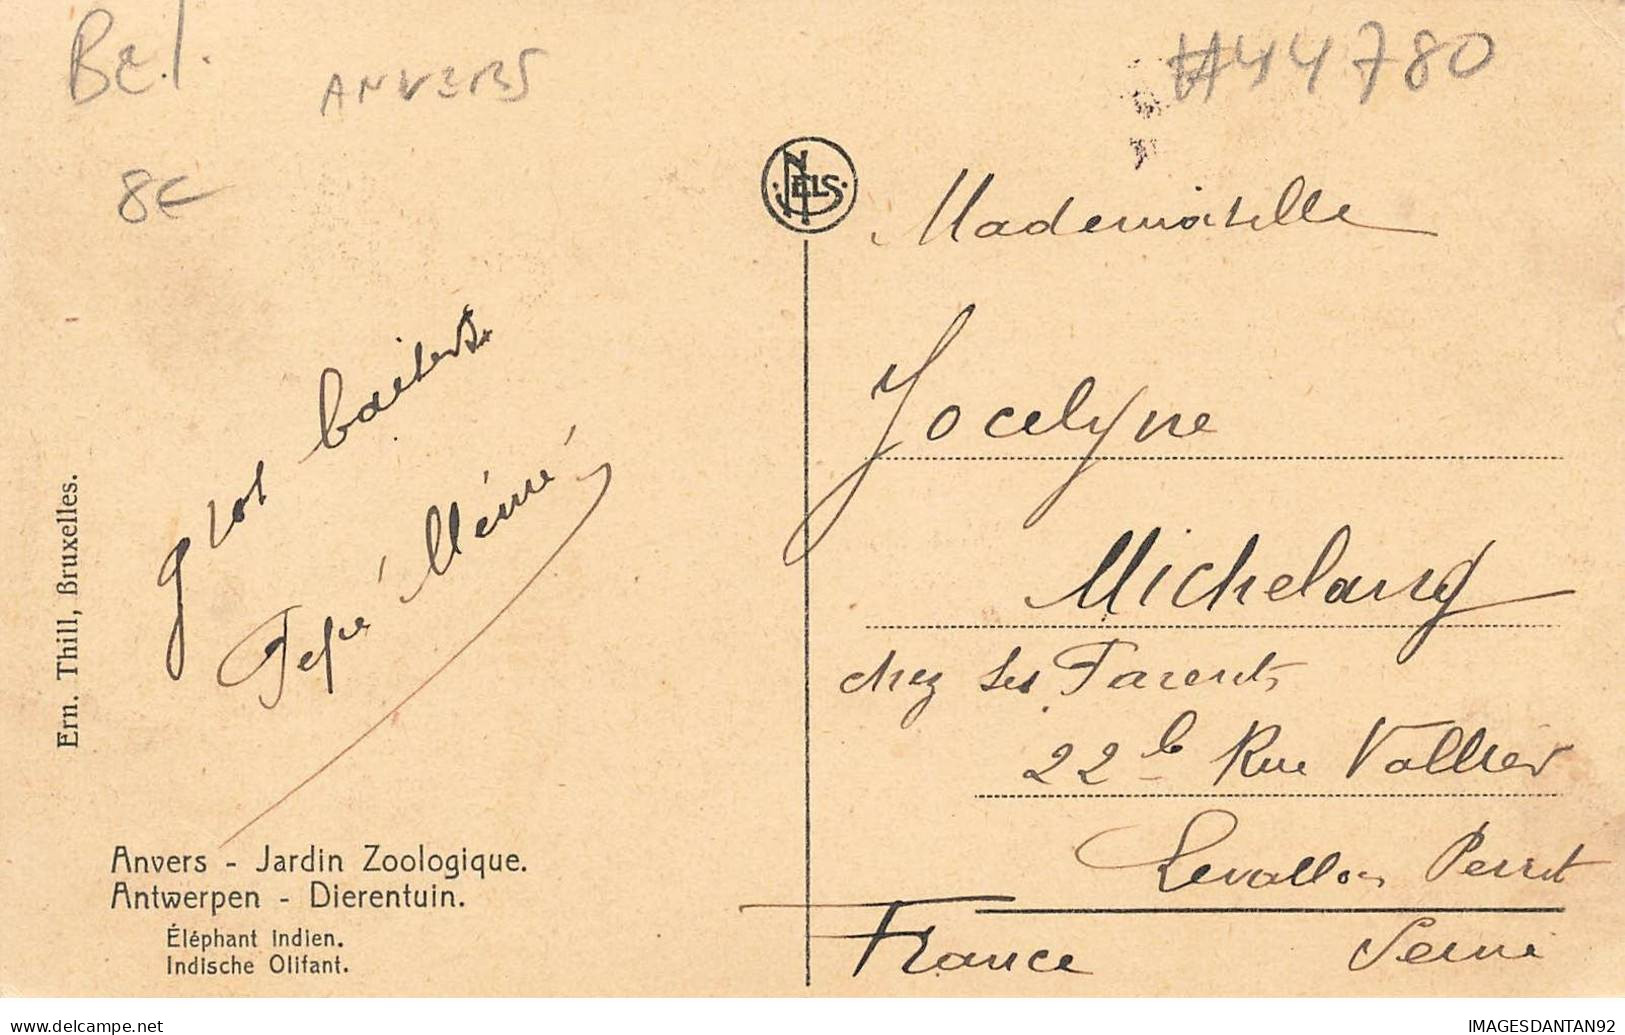 Bel.
ANVERS
8€
#44780
NELS
Mademoiselle
Jocelyne
Michelang
chez ses Parents
22 b Rue Vallier
Levallois Perret
Seine
France
gros baisers
Pépé Mémé
Ern. Thill, Bruxelles.
Anvers - Jardin Zoologique.
Antwerpen - Dierentuin.
Éléphant indien.
Indische Olifant.
www.delcampe.net
IMAGESDANTAN92